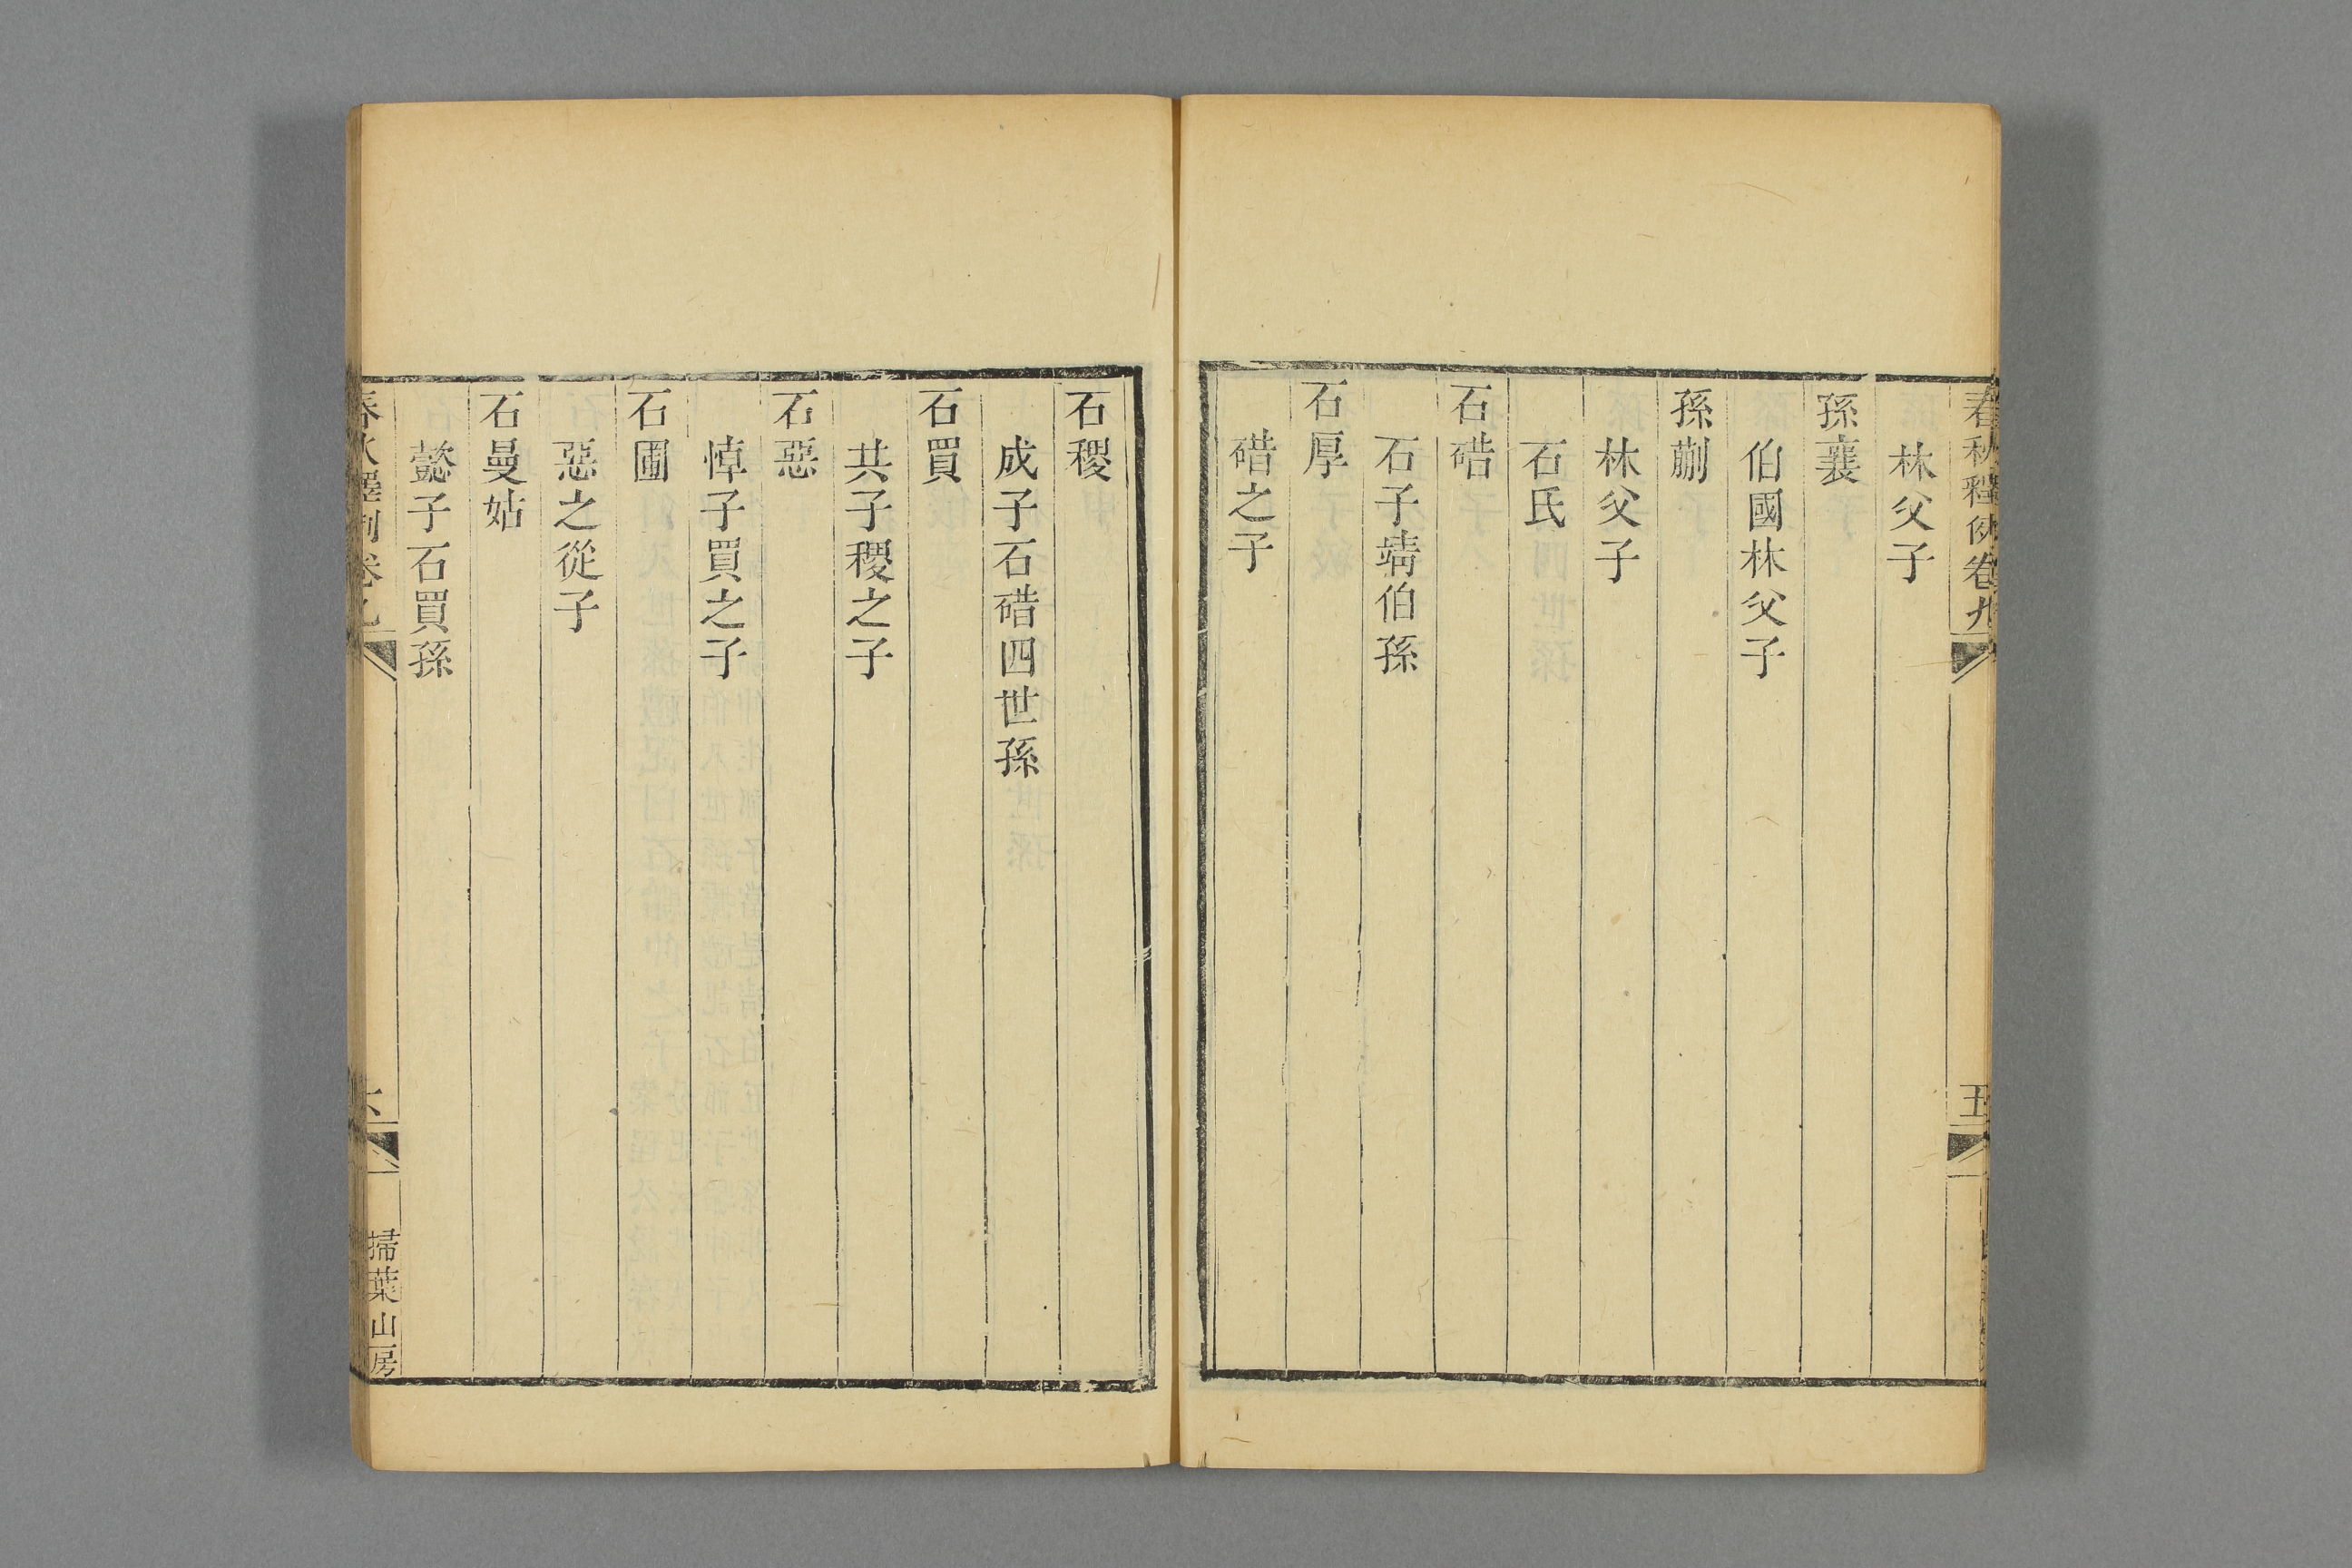 春秋釋例卷九
五
林父子
孫襄
伯國林父子
孫蒯
林父子
石氏
石碏
石子靖伯孫
石厚
碏之子
石稷
成子石碏四世孫
石買
共子稷之子
石惡
悼子買之子
石圃
惡之從子
石曼姑
懿子石買孫
春秋釋例卷九
掃葉山房